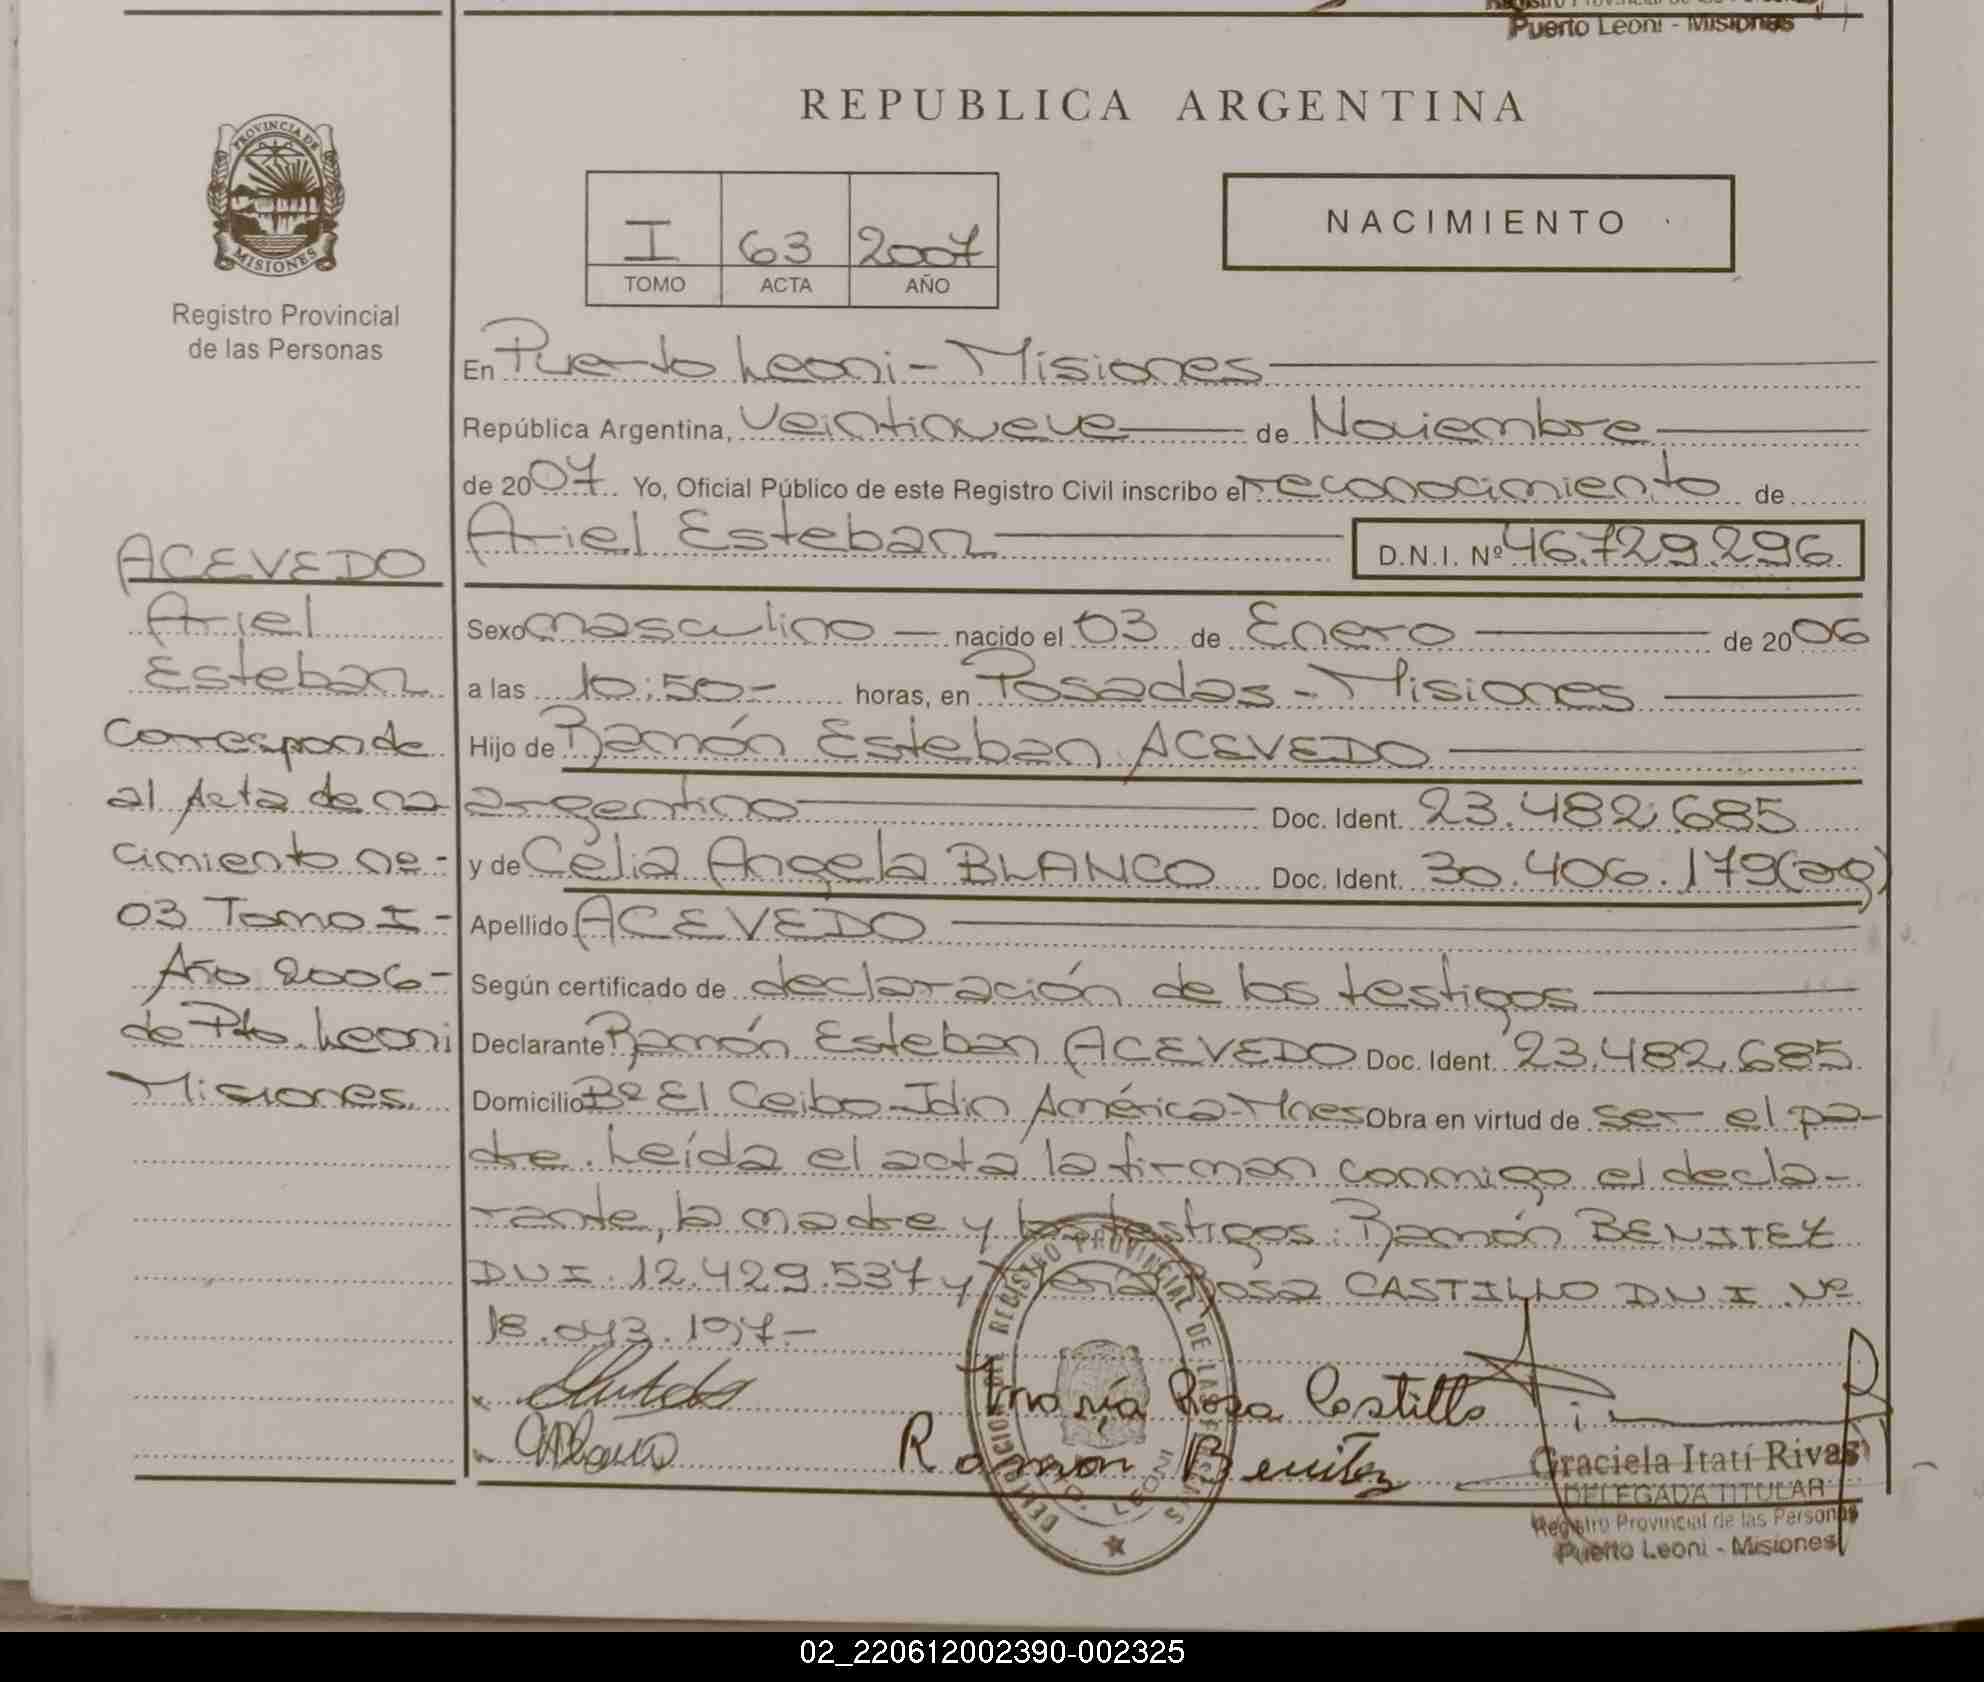 Puerto Leoni - Misiones
REPUBLICA ARGENTINA
PROVINCIA DE
MISIONES
Registro Provincial
de las Personas
I 63 2007
TOMO ACTA AÑO
NACIMIENTO
En Puerto Leoni - Misiones
República Argentina, Veintinueve de Noviembre
de 2007 Yo, Oficial Público de este Registro Civil inscribo el reconocimiento de
Ariel Esteban D.N.I. Nº 46.729.296
Sexo masculino nacido el 03 de Enero de 2006
a las 10:50- horas, en Posadas - Misiones
Hijo de Ramón Esteban ACEVEDO
argentino Doc. Ident. 23.482.685
y de Celia Angela BLANCO Doc. Ident. 30.406.179(ag)
Apellido ACEVEDO
Según certificado de declaración de los testigos
Declarante Ramón Esteban ACEVEDO Doc. Ident. 23.482.685
Domicilio Bº El Ceibo-Jdin América-Mnes Obra en virtud de ser el pa-
dre. Leída el acta la firman conmigo el decla-
rante, la madre y los testigos: Ramón BENITEZ
DNI. 12.429.537 y María Rosa CASTILLO DNI Nº
18.043.197-
ACEVEDO
Ariel
Esteban
Corresponde
al Acta de na
cimiento nº-
03 Tomo I-
Año 2006-
de Pto. Leoni
Misiones
María Rosa Castillo
Ramón Benitez
REGISTRO PROVINCIAL DE LAS PERSONAS
LEONI
Graciela Itatí Rivas
DELEGADA TITULAR
Registro Provincial de las Personas
Puerto Leoni - Misiones
02_220612002390-002325